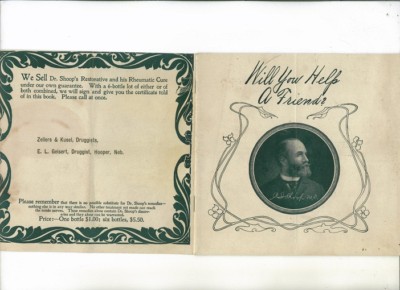 We Sell Dr. Shoop's Restorative and his Rheumatic Cure
under our own guarantee. With a 6-bottle lot of either or of
both combined, we will sign and give you the certificate told
of in this book. Please call at once.
Zellers & Kusel, Druggists,
E. L. Geisert, Druggist, Hooper, Neb.
Please remember that there is no possible substitute for Dr. Shoop's remedies—
nothing else is in any way similar. No other treatment yet made can reach
the inside nerves. These remedies alone contain Dr. Shoop's
and they alone can be warranted.
Price:—One bottle $1.00; six bottles, $5.50.
Will You Help
A Friend?